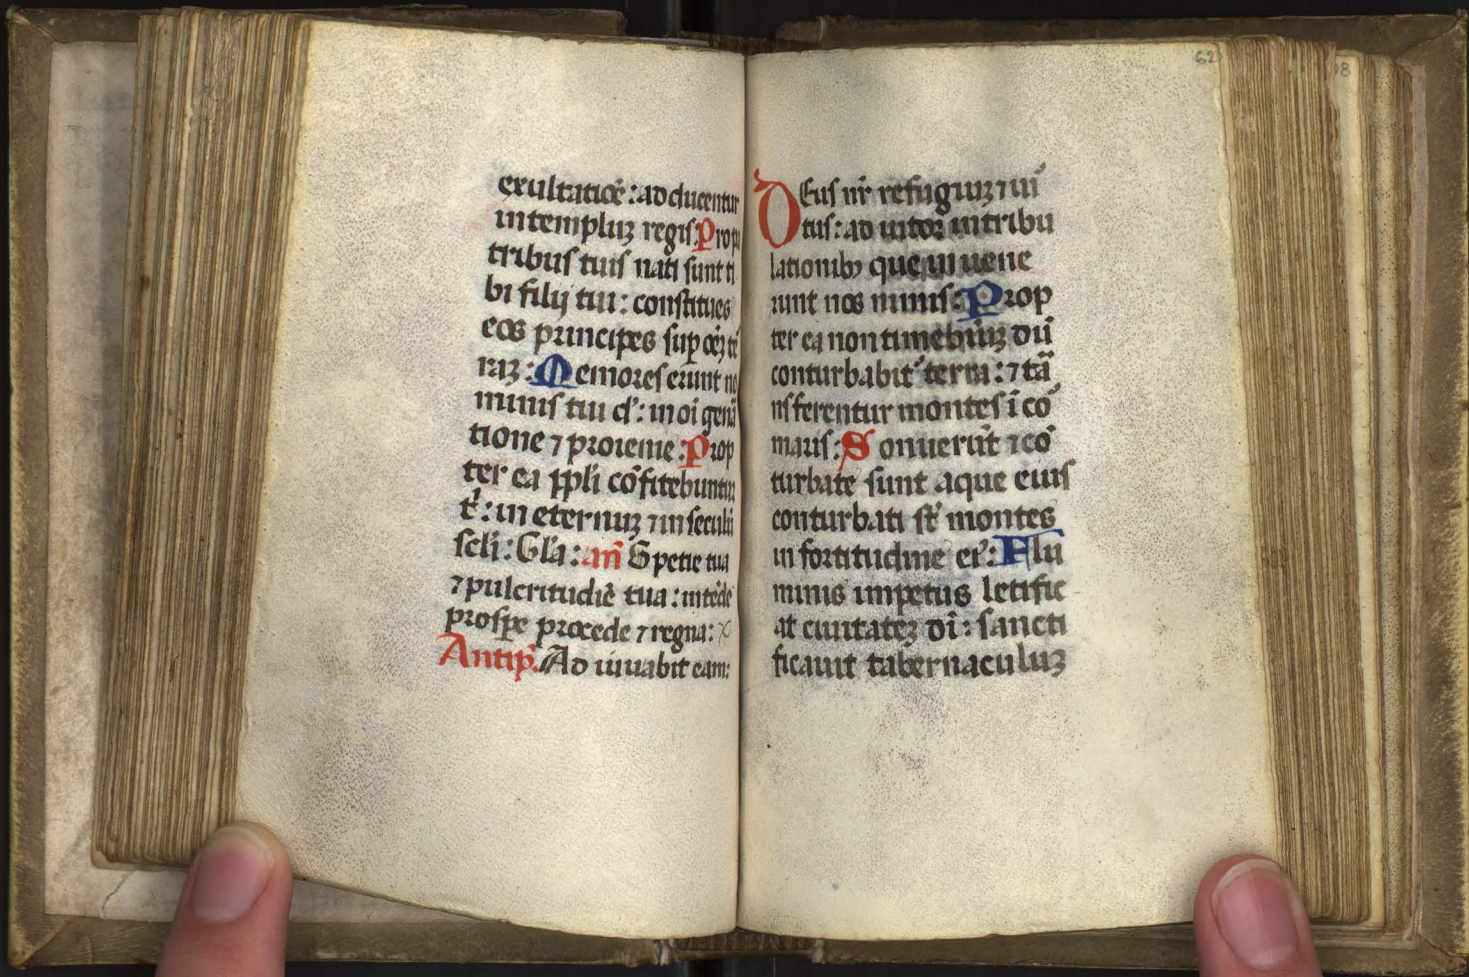 exultatiõe: ad ducentur
in templuꝫ regis. Prop
tribus tuis nati sunt ti
bi filij tui: constitues
eos principes sup oẽꝫ tẽ
raꝫ: Memores erunt no
minis tui d': in oi genã
tione ⁊ proieniē: Prop
ter ea ppli cõfitebuntur
t': in eternuꝫ ⁊ in seculũ
scli: Gl'a: an̄ Spetie tua
⁊ pulcritudiē tua: intẽde
prospe procede ⁊ regna:
Antip̃. Ad iuuabit eam:
62
Deus nr̃ refugiuꝫ ⁊ uir
tus: ad iutoꝛ in tribu
lationibꝫ que inuene
runt nos nimis: Prop
ter ea non timebim̃ꝫ dũ
conturbabit' terra: ⁊ tã
nsferentur montes ĩ co
maris: Sonuerũt ⁊ cõ
turbate sunt aque eius
conturbati st̃ montes
in fortitudine ei': Flu
minis impetus letific
at ciuitateꝫ di: sancti
ficauit tabernaculuꝫ